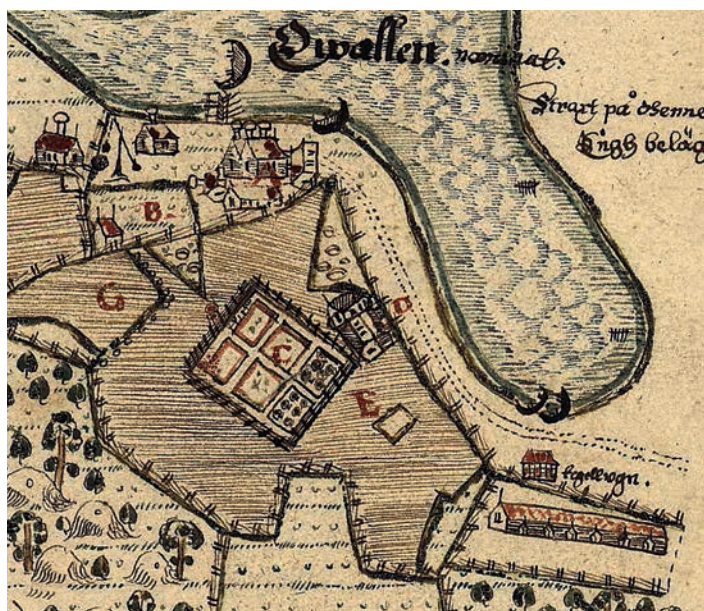 Qwallen. nominat.
Straxt på dhenne
Ängh beläg
A
B.
G
D
C
E
tegellogn.